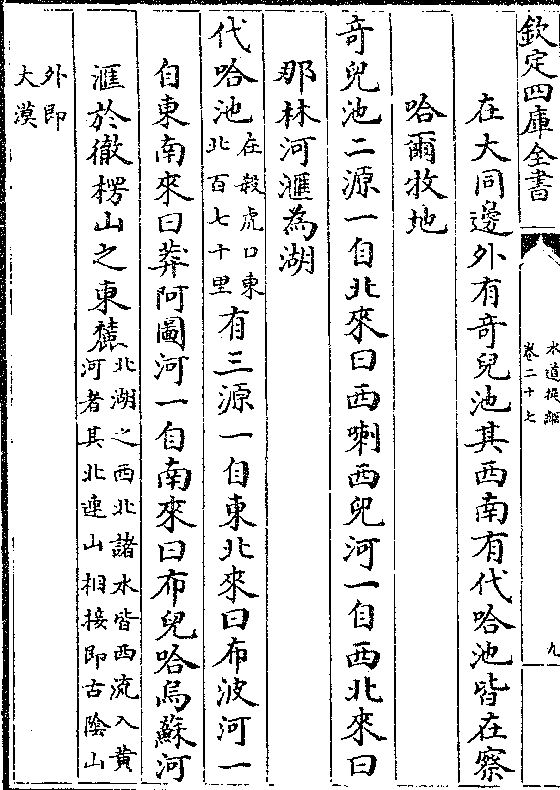 欽定四庫全書
水道提綱
卷二十七
九
在大同邊外有奇兒池其西南有代哈池皆在察
哈爾牧地
奇兒池二源一自北來曰西喇西兒河一自西北來曰
那林河滙為湖
代哈池在殺虎口東北百七十里有三源一自東北來曰布波河一
自東南來曰莽阿圖河一自南來曰布兒哈烏蘇河
滙於徹楞山之東麓北湖之西北諸水皆西流入黄河者其北連山相接即古陰山
外即大漠